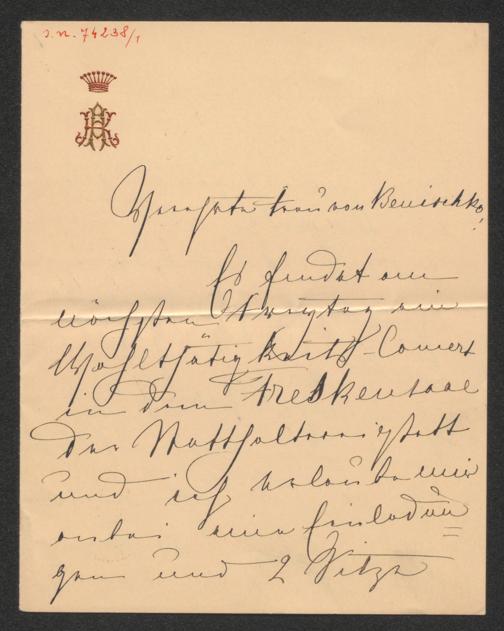 I. N. 74238/1
Verehrte Frau von Benischko!
Es findet am
nächsten Freytag ein
Wohltätigkeits-Concert
in dem Freskensaal
der Statthalterei statt
und ich erlaube mir
anbei eine Einladun
gen und 2 Sitze